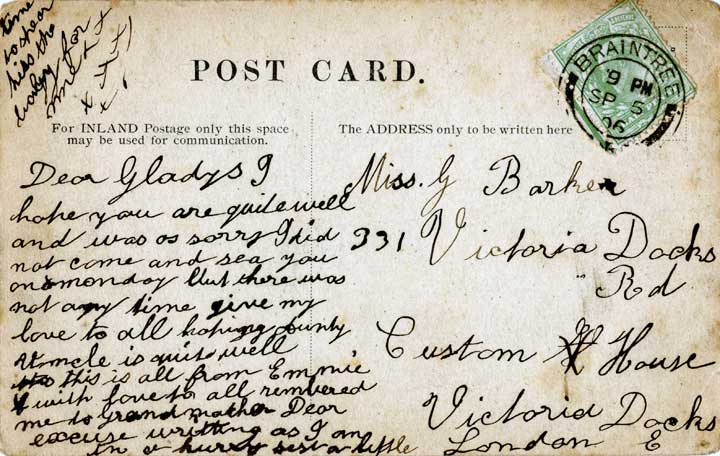 time
to spear
kiss the
baby for
mine x x
x x x
x
POST CARD.
BRAINTREE
9 PM
SP 5
06
For INLAND Postage only this space
may be used for communication.
The ADDRESS only to be written here
Dear Gladys I
hope you are quite well
and was os sorry I did
not come and sea you
on monday but there was
not any time give my
love to all hoping aunty
Uncle is quite well
this is all from Emmie
with love to all rembered
me to Grand mother Dear
excuse writting as I am
in a hurry sest a little
Miss. G Barker
331 Victoria Docks
Rd
Custom House
Victoria Docks
London E